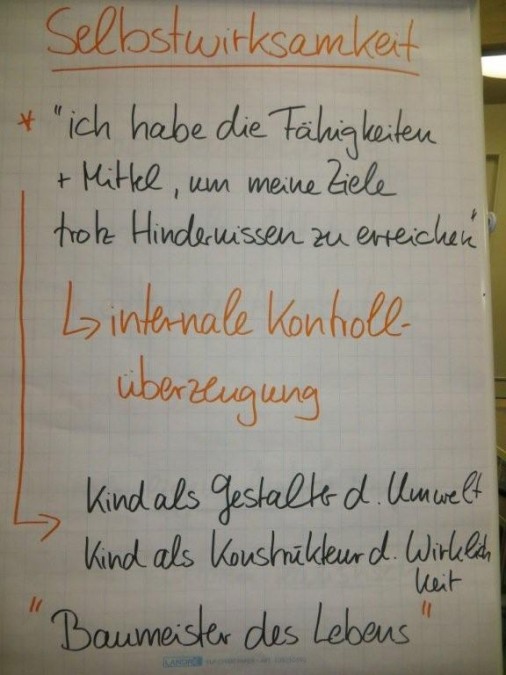 Selbstwirksamkeit
* "ich habe die Fähigkeiten
+ Mittel, um meine Ziele
trotz Hindernissen zu erreichen"
↳ internale Kontroll-
überzeugung
Kind als Gestalter d. Umwelt
Kind als Konstrukteur d. Wirklich
keit
"Baumeister des Lebens"